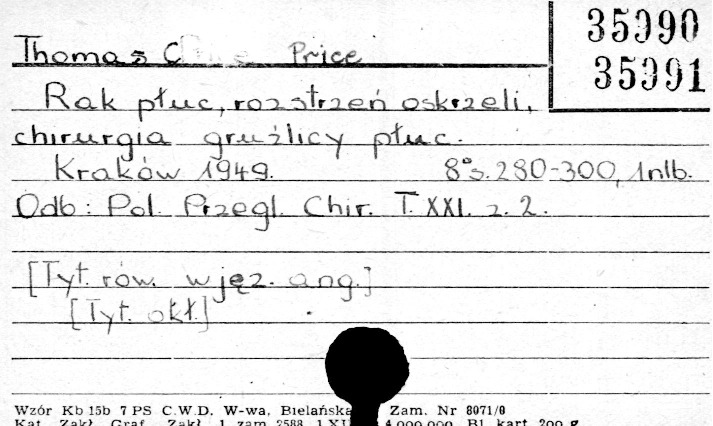 35990
35991
Thomas C Price
Rak płuc, rozstrzeń oskrzeli,
chirurgia gruźlicy płuc.
Kraków 1949. 8°s. 280-300, 1nlb.
Odb: Pol. Przegl. Chir. T. XXI. z. 2.
[Tyt. rów. w jęz. ang.]
[Tyt. okł.]
Wzór Kb 15b 7 PS C.W.D. W-wa, Bielańska Zam. Nr 8071/0
Kat. Zakł. Graf. Zakł. 1 zam. 2588 1.XI 4.000.000 Bl. kart. 200 g